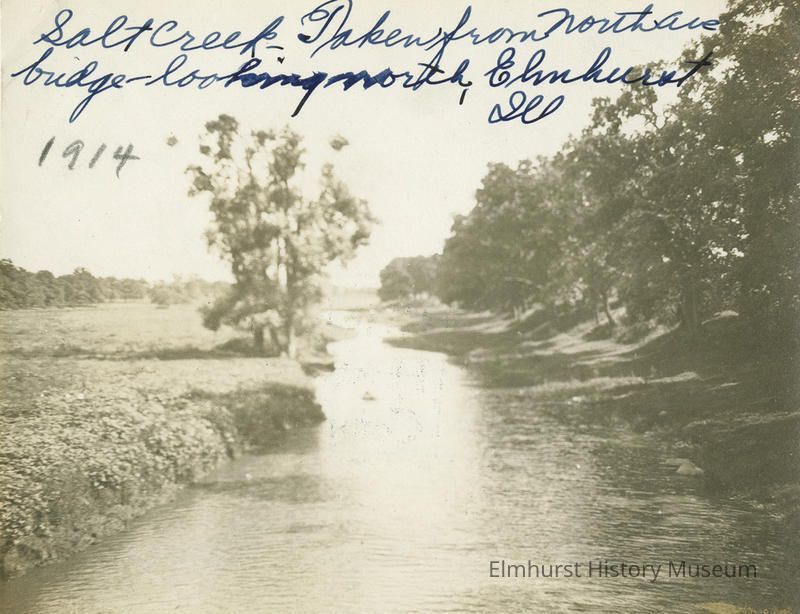 Salt Creek - Taken from North Ave
bridge - looking north, Elmhurst
Ill
1914
Elmhurst History Museum